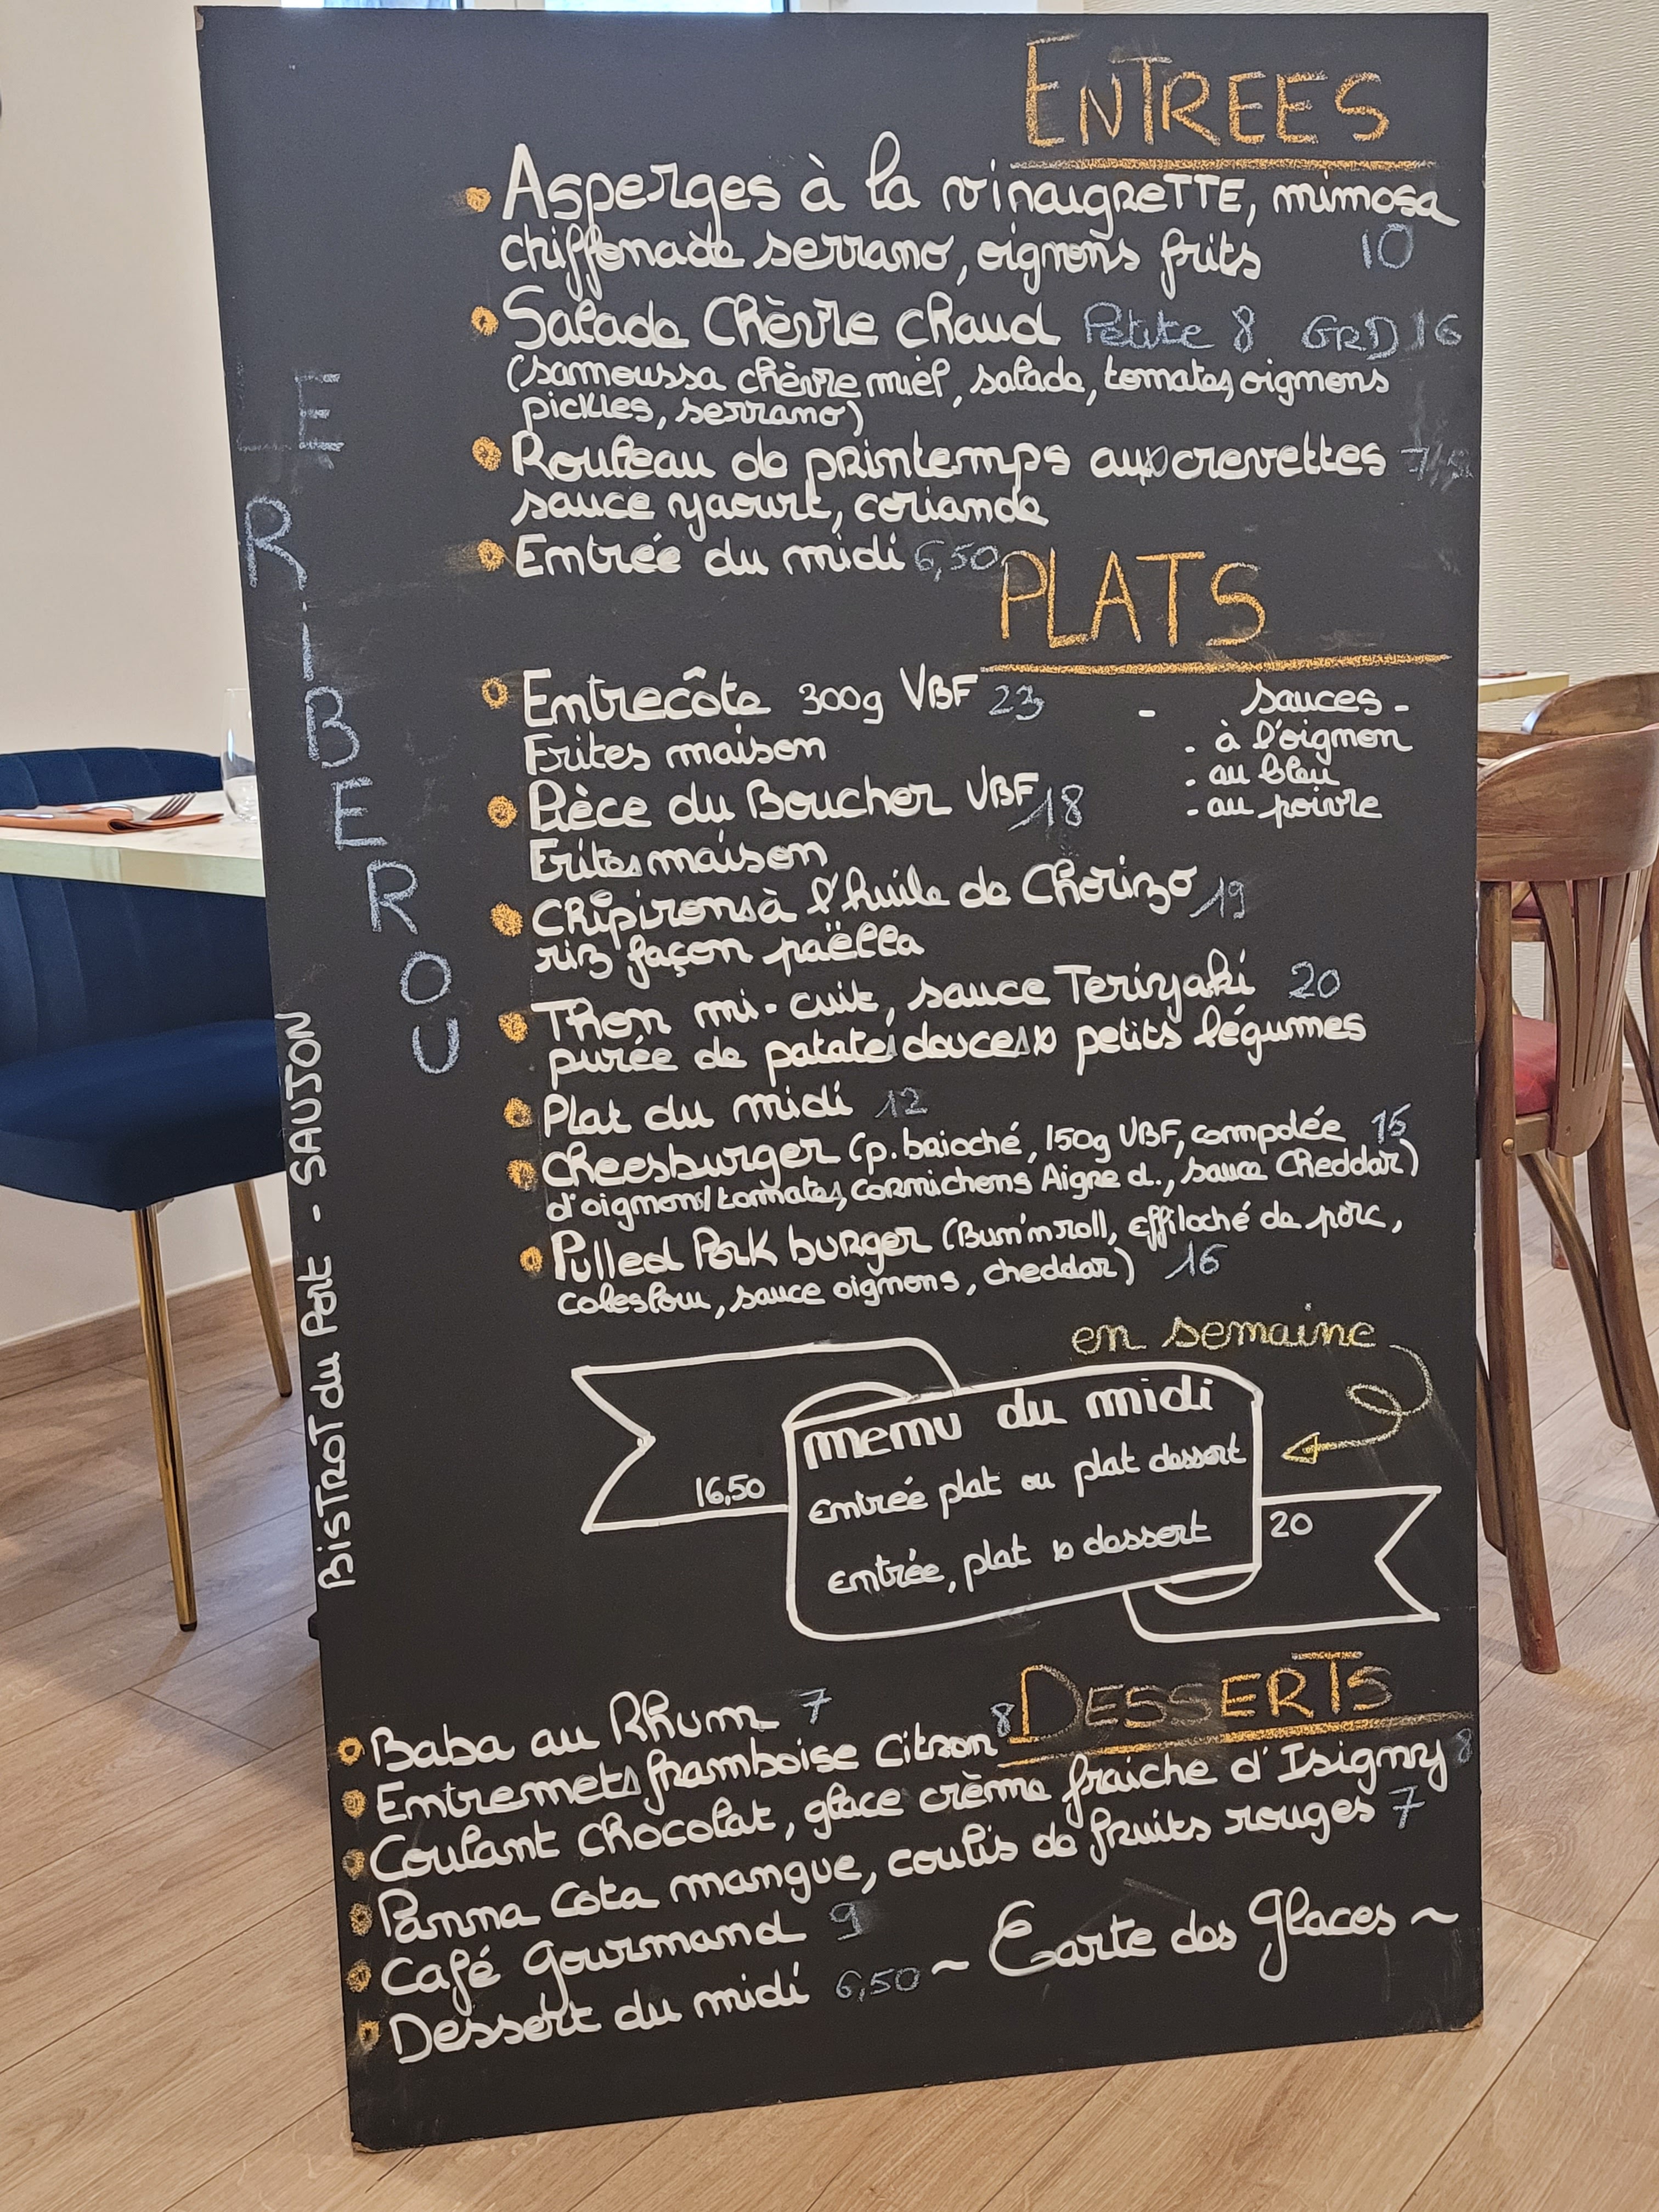 ENTREES
Asperges à la vinaigrette, mimosa
chiffonade serrano, oignons frits 10
Salade Chèvre chaud Petite 8 GRD 16
(samoussa chèvre miel, salade, tomates, oignons
pickles, serrano)
Rouleau de printemps aux crevettes
sauce yaourt, coriande
Entrée du midi 6,50
PLATS
Entrecôte 300g VBF 23
Frites maison
Pièce du Boucher VBF 18
Frites maison
- sauces -
- à l'oignon
- au bleu
- au poivre
Chipirons à l'huile de Chorizo 19
riz façon paëlla
Thon mi-cuit, sauce Teriyaki 20
purée de patates douces & petits légumes
Plat du midi 12
Cheesburger (p. baioché, 150g VBF, compotée 15
d'oignons/tomates, cornichons Aigre d., sauce Cheddar)
Pulled Pork burger (Bun'n roll, effiloché de porc,
coleslow, sauce oignons, cheddar) 16
en semaine
menu du midi
16,50 entrée plat ou plat dessert
entrée, plat & dessert 20
DESSERTS
Baba au Rhum 7
Entremets framboise citron 8
Coulant chocolat, glace crème fraiche d'Isigny 8
Panna Cota mangue, coulis de fruits rouges 7
Café Gourmand 9
Dessert du midi 6,50
~ Carte des Glaces ~
LE RIBEROU
BISTROT du Port - SAUJON